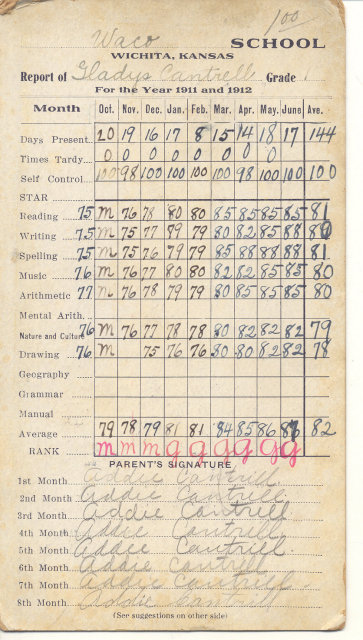 100
Waco SCHOOL
WICHITA, KANSAS
Report of Gladys Cantrell Grade 1
For the Year 1911 and 1912
Month Oct. Nov. Dec. Jan. Feb. Mar. Apr. May. June Ave.
Days Present 20 19 16 17 8 15 14 18 17 144
Times Tardy 0 0 0 0 0 0 0 0
Self Control 100 98 100 100 100 100 98 100 100 100
STAR
Reading 75 m 76 78 80 80 85 85 85 85 81
Writing 75 m 75 77 79 79 80 82 85 88 80
Spelling 75 m 75 76 79 79 85 88 88 88 81
Music 76 m 76 77 80 80 82 82 85 85 80
Arithmetic 77 m 76 78 79 79 80 85 85 85 80
Mental Arith.
Nature and Culture 76 m 76 77 78 78 80 82 82 82 79
Drawing 76 m 75 76 76 80 80 82 82 78
Geography
Grammar
Manual
Average 79 78 79 81 81 84 85 86 86 82
RANK m m m g g g g g g
PARENT'S SIGNATURE
1st Month Addie Cantrell
2nd Month Addie Cantrell
3rd Month Addie Cantrell
4th Month Addie Cantrell
5th Month Addie Cantrell
6th Month Addie Cantrell
7th Month Addie Cantrell
8th Month Addie Cantrell
(See suggestions on other side)